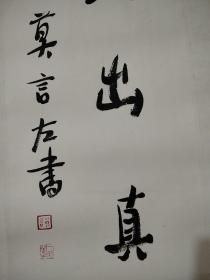 出真
莫言左書